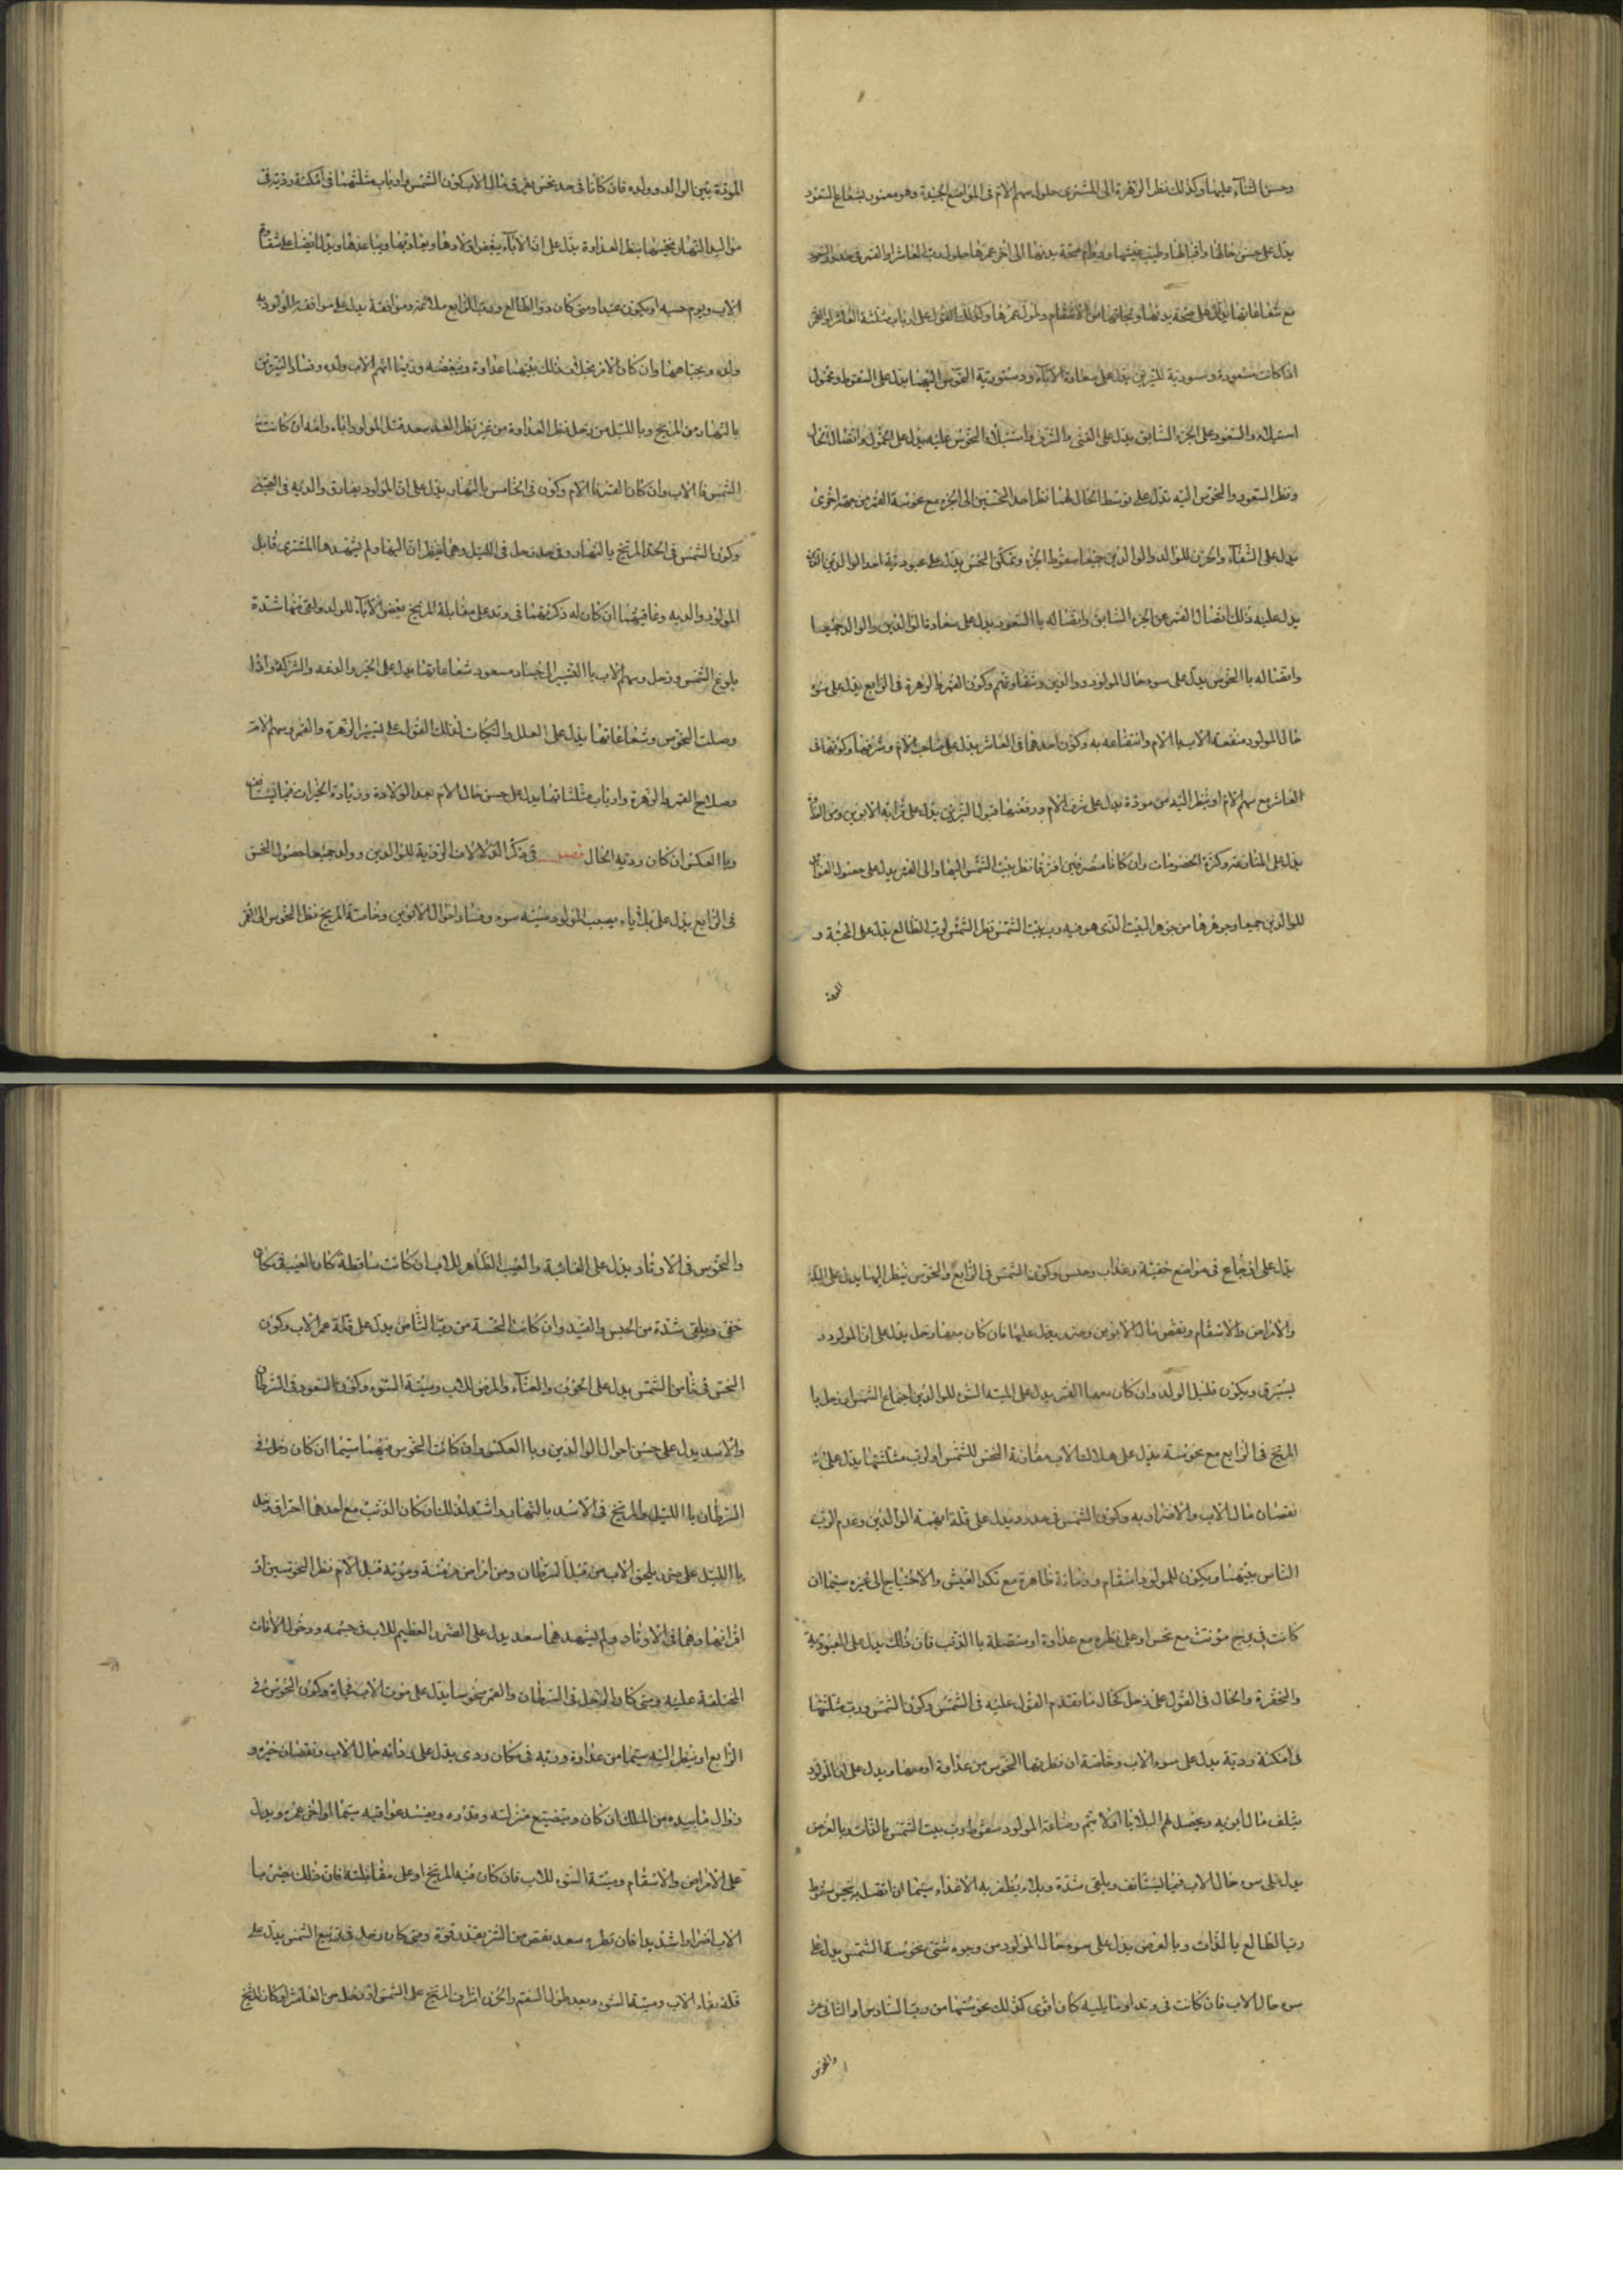 وحسن الثنآء عليها وكذلك نظر الزهرة الى المشترى حلول سهم الام فى المواضع الجيدة وهو معنون بشعاع السعود
يدل على حسن حالها واقبالها وطيب عيشها ودوام صحة بدنها الى اخر عمرها حلول رب العاشر او القمر فى حدود السعود
مع شعاعاتها يدل على صحة بدنها ونجاتها من الاسقام وطول عمرها وكذلك القول على ارباب مثلثة العاشر او القمر
اذا كانت مسعودة ودستورية النيرين يدل على سعادة الآبآء ودستورية النحوس اليهما يدل على السقوط وخمول
استيلاء السعود على الجزء السابق يدل على الغنى والشرف واستيلاء النحوس عليه يدل على الخمول واتصال الحال
ونظر السعود والنحوس اليه يدل على توسط الحال لهما نظر احد النحسين الى الجزء مع نحوسة القمر من جهة اخرى
يدل على الشقآء والحزن للوالد والوالدين جميعا سقوط الجزء وتمكن النحس يدل على عبودية احد الوالدين
يدل عليه ذلك اتصال القمر عن الجزء السابق واتصاله باالسعود يدل على سعادة الوالدين والوالد جميعا
واتصاله باالنحوس يدل على سوء حال المولود ووالدين وشقاوتهم وكون القمر والزهرة فى الرابع يدل على سوء
حال المولود منفعة الاب باالام وانتفاعه به وكون احدهما فى العاشر يدل على صاحب الام وشرفها وكونها فى
العاشر مع سهم الام او ينظر اليه من مودة يدل على شرف الام ورفعتها قبول النيرين يدل على قرابة الابوين ومن
يدل على المنافسة وكثرة الخصومات وان كانا منصرفين افترقا نظر بيت الشمس اليها والى القمر يدل على حصول
للوالدين جميعا وجوهرها من جوهر البيت الذى هو فيه رب بيت الشمس نظر الشمس لرب الطالع يدل على المحبة و
المودة
المودة بين الوالد وولده فان كانا فى حد نحس يفرق مال الاب كون الشمس وارباب مثلثتها فى امكنة ردية فى
مواليد النهار ونحسها ينظر العداوة يدل على ان الآبآء يبغض اولادها ويعاديها ويباعدها ويدل ايضا على شقاوة
الاب ويوم حبسه او يكون عبدا ومتى كان رب الطالع ورب الرابع ملائمة وموافقة يدل على موافقة المولود به
ولده ويحبا همها وان كان الامر بخلاف ذلك بينهما عداوة وبغضه وربما اتهم الاب ولده وفساد النيرين
باالنهار من المريخ وباالليل من زحل نظر العداوة من غير نظر سعد قتل المولود اباه وامه ان كانت
الشمس فاالاب وان كان القمر فاالام وكون فى الخامس باالنهار يدل على ان المولود يفارق والديه فى
وكون الشمس فى الحد المريخ باالنهار وفى حد زحل فى الليل وهما ينظران اليها ولم يشهدها المشترى قابل
المولود والديه وعاقبتهما ان كان له ذكر بهما فى وتد على مقابلة المريخ بغض الآبآء للولد ولقى منها شدة
بلوغ الشمس وزحل وسهم الاب باالتسيير الى جساد مسعود شعاعاتها يدل على الخير والرفعة والشركة واذا
وصلت النحوس وشعاعاتها يدل على العلل والنكبات كذلك القول على تسيير الزهرة والقمر وسهم الام
وصلاح القمر والزهرة وارباب مثلثاتها يدل على حسن حال الام بعد الولادة وزيادة الخيرات فيما يستانف
وباالعكس ان كان ردية الحال فصل فى ذكر الدلالات الردية للوالدين وولد جميعا حصول النحس
فى الرابع يدل على بلآياء يصيب المولود ميتة سوء وفساد احوال الابوين وخاصة المريخ نظر النحوس الى القمر
يدل على اوجاع فى مواضع خفية وعذاب وحبس وكون الشمس فى الرابع والنحوس ينظر اليها يدل على
والامراض والاسقام ونقص مال الابوين وضرر يدخل عليها فان كان معها زحل يدل على ان المولود
يسترق ويكون قليل الولد وان كان معها القمر يدل على الميتة السوء للوالدين اجتماع الشمس او زحل با
المريخ فى الرابع مع نحوسته يدل على هلاك الاب مقارنة النحس للشمس او لرب مثلثتها يدل على
نقصان مال الاب والاضرار به وكون الشمس فى حدوده يدل على قلة ابهة الوالدين وعدم
الناس بينهما ويكون للمولود اسقام وزمانة ظاهرة مع نكد العيش والاحتياج الى غيره سيما ان
كانت فى برج مؤنث مع نحس او على نظره مع عداوة او متصلة باالذنب فان ذلك يدل على العبودية
والحقرة والحال فى القول على زحل كحال ما تقدم القول عليه فى الشمس وكون الشمس ورب مثلثتها
فى امكنة ردية يدل على سوء الاب وخاصة ان نظر بها النحوس من عداوة او معها ويدل على ان المولود
يتلف مال ابويه ويحصل لهم البلايا او لايتم وضاعة المولود سقوط رب بيت الشمس باالذات وباالعرض
يدل على سوء حال الاب فيما يستانف ويلقى شدة وبلاء يظفر به الاعداء سيما ان اتصل بنحس سقوط
رب الطالع باالذات وباالعرض يدل على سوء حال المولود من وجوه شتى نحوسة الشمس يدل على
سوء حال الاب فان كانت فى وتد او مايليه كان اقوى كذلك نحوستها من رب السادس او الثانى عشر
والنحوس
والنحوس فى الاوتاد يدل على الغائبة والعيب الظاهر للاب ان كانت ساقطة كان العيب فى مكان
خفى ويلقى شدة من الحبس والقيد وان كانت النحسة من رب الثامن يدل على قلة عمر الاب وكون
النحس فى ثامن الشمس يدل على الخوف والعنآء والمرض للاب وميتة السوء وكون السعود فى السرطان
والاسد يدل على حسن احوال الوالدين وباالعكس وان كانت النحوس فيهما سيما ان كان زحل فى
السرطان باالليل والمريخ فى الاسد باالنهار واشد لذلك ان كان الذنب مع احدهما احتراق زحل
باالليل على ضرر يلحق الاب من قبل السرطان ومن امراض مزمنة وموته قبل الام نظر النحوسين او
اقرانها وهما فى الاوتاد ولم يشهد هما سعد يدل على الضرر العظيم للاب فى جسمه ودخول الآفات
المختلفة عليه ومتى كان زحل فى السرطان والقمر منحوسا يدل على موت الاب فجاة وكون النحوس فى
الرابع او ينظر اليه سيما من عداوة وربه فى مكان ردى يدل على رداة حال الاب ونقصان خيره و
زوال مابيده من الملك ان كان وبتضييع منزلته وقدره ويفسد عواقبه سيما اواخر عمره ويدل
على الامراض والاسقام وميتة السوء للاب فان كان فيه المريخ او على مقابلته فان ذلك يضر با
الاب اضرارا شديدا فان نظره سعد نقص من الشر بقدر قوة ومتى كان زحل فى تربيع الشمس يدل على
قلة بقاء الاب وميتة السوء وبعد طول السقم والحزن اشراف المريخ على الشمس او زحل من العاشر او كان المريخ